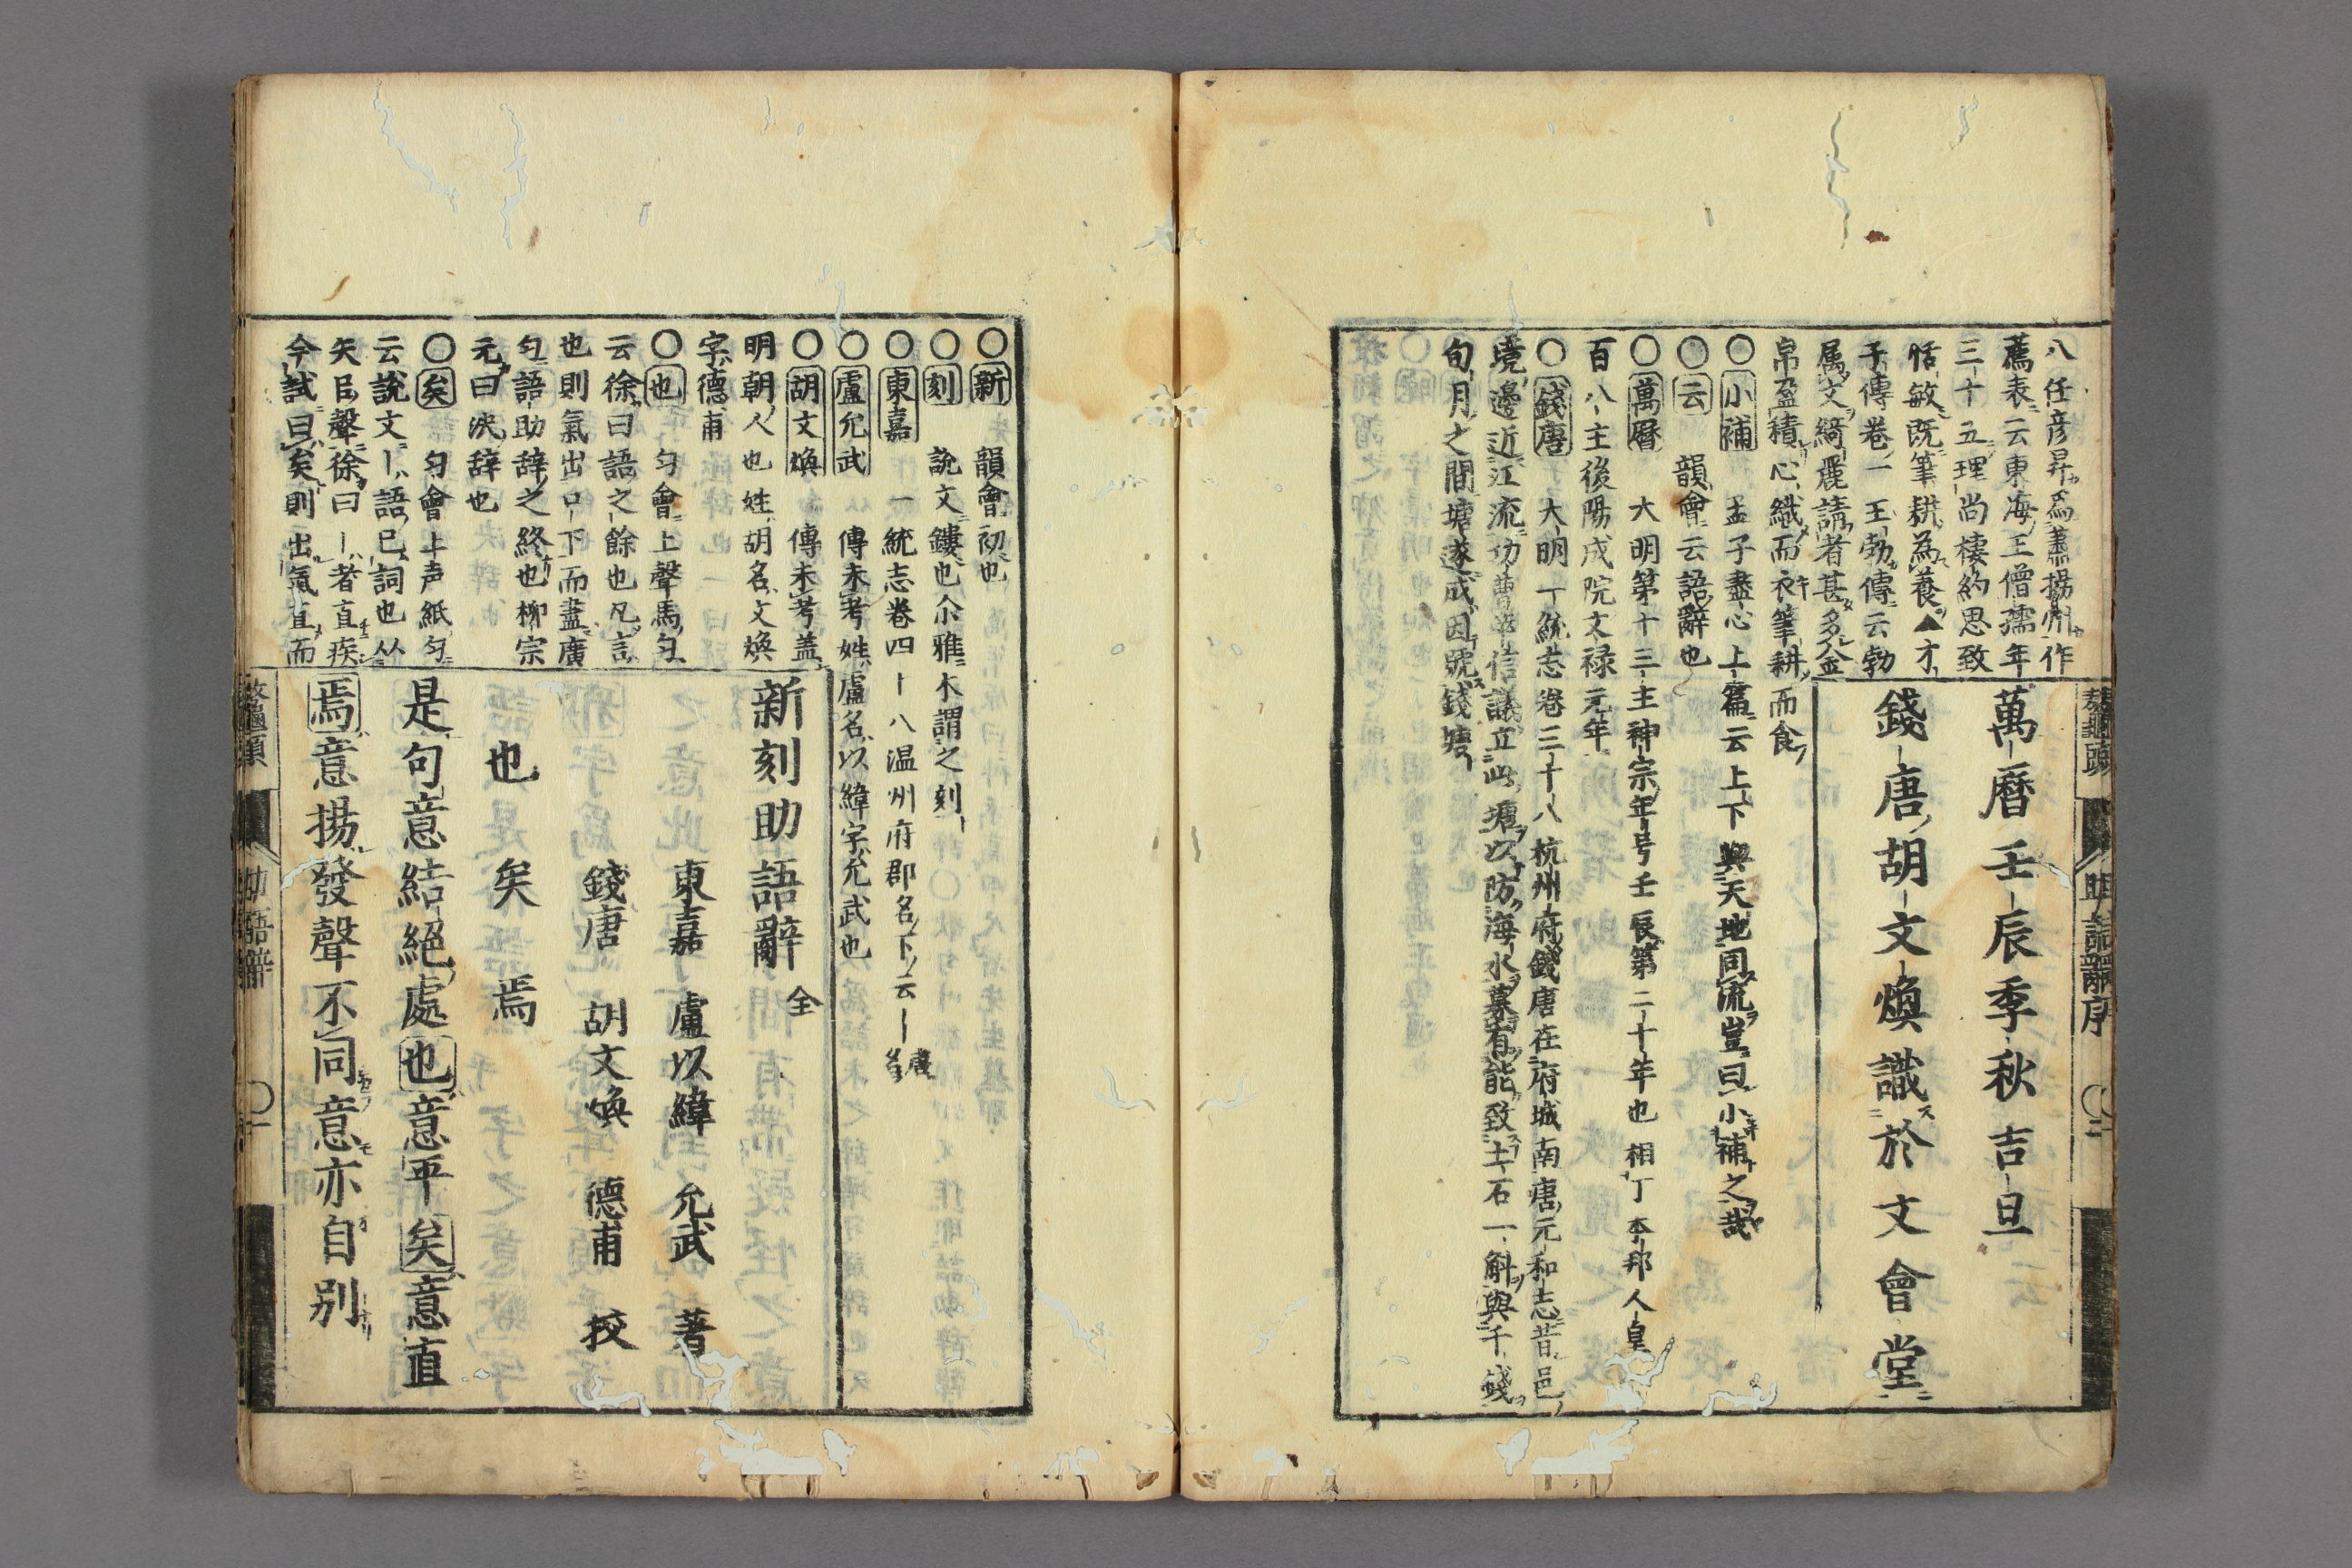 八任彦昇爲蕭揚州作
薦表云東海王僧孺年
三十五理尚棲約思致
恬敏既筆耕為養▲才
子傳卷一王勃傳云勃
属文綺麗請者甚多金
帛盈積心織而衣筆耕而食
○小補 孟子盡心上篇云上下與天地同流豈曰小補之哉
○云 韻會云語辭也
○萬暦 大明第十三主神宗年号壬辰第二十年也相丁本邦人皇
百八主後陽成院文禄元年
○錢唐 大明一統志卷三十八杭州府錢唐在府城南唐元和志昔邑
境邊近江流功曹華信議立此塘以防海水募有能致土石一斛與千錢
旬月之間塘遂成因號錢塘
萬暦壬辰季秋吉旦
錢唐胡文煥識於文會堂
鼇頭 助語辭序 ○二
○新 韻會初也
○刻 説文鏤也尒雅木謂之刻
○東嘉 一統志卷四十八温州府郡名下云
○盧允武 傳未考姓盧名以緯字允武也
○胡文煥 傳未考盖
明朝人也姓胡名文煥
字德甫
○也 匀會上聲馬匀
云徐曰語之餘也凡言
也則氣出口下而盡廣
匀語助辞之終也柳宗
元曰决辞也
○矣 匀會上声紙匀
云說文ー語已詞也从
矢㠯聲徐曰ー者直疾
今試曰矣則出氣直而
新刻助語辭 全
東嘉 盧以緯 允武 著
錢唐 胡文煥 德甫 挍
也 矣 焉
是句意結絕處也意平矣意直
焉意揚發聲不同意亦自別
鼇頭 助語辭 ○一